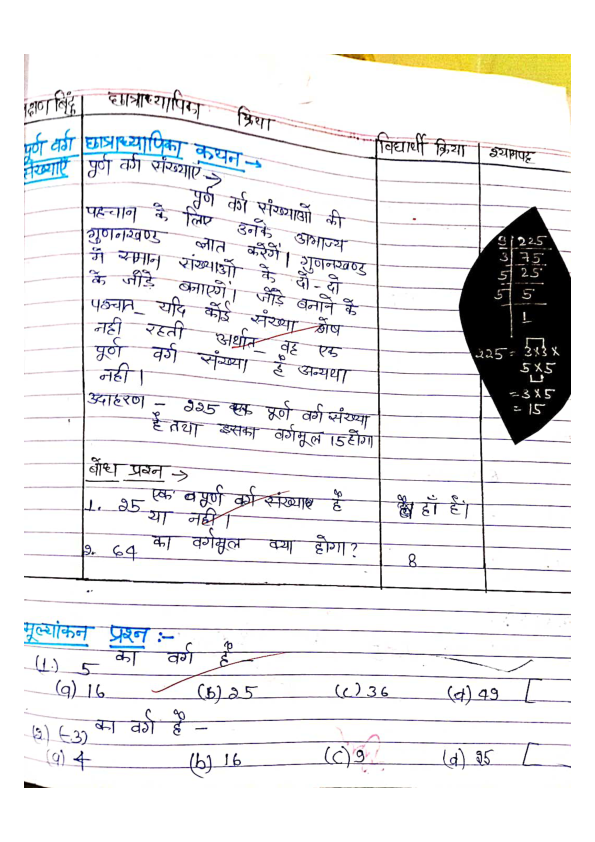 क्षण बिंदु
छात्राध्यापिका क्रिया
विद्यार्थी क्रिया
श्यामपट्ट
पूर्ण वर्ग
संख्याएँ
छात्राध्यापिका कथन →
पूर्ण वर्ग संख्याएं →
पूर्ण वर्ग संख्याओं की
पहचान के लिए उनके अभाज्य
गुणनखण्ड ज्ञात करेगें। गुणनखण्ड
में समान संख्याओं के दो-दो
के जोड़े बनाएगें। जोड़े बनाने के
पश्चात - यदि कोई संख्या शेष
नही रहती अर्थात - वह एक
पूर्ण वर्ग संख्या है अन्यथा
नही।
उदाहरण - 225 एक पूर्ण वर्ग संख्या
है तथा इसका वर्गमूल 15 होगा
3 225
3 75
5 25
5 5
1
225 = 3×3×
5×5
= 3×5
= 15
बोध प्रश्न →
1. 25 एक पूर्ण वर्ग संख्याए है
या नही।
हाँ है।
2. 64 का वर्गमूल क्या होगा?
8
मूल्यांकन प्रश्न :-
(1.) 5 का वर्ग है -
(a) 16 (b) 25 (c) 36 (d) 49 [
(2) (-3) का वर्ग है -
(a) 4 (b) 16 (c) 9 (d) 25 [